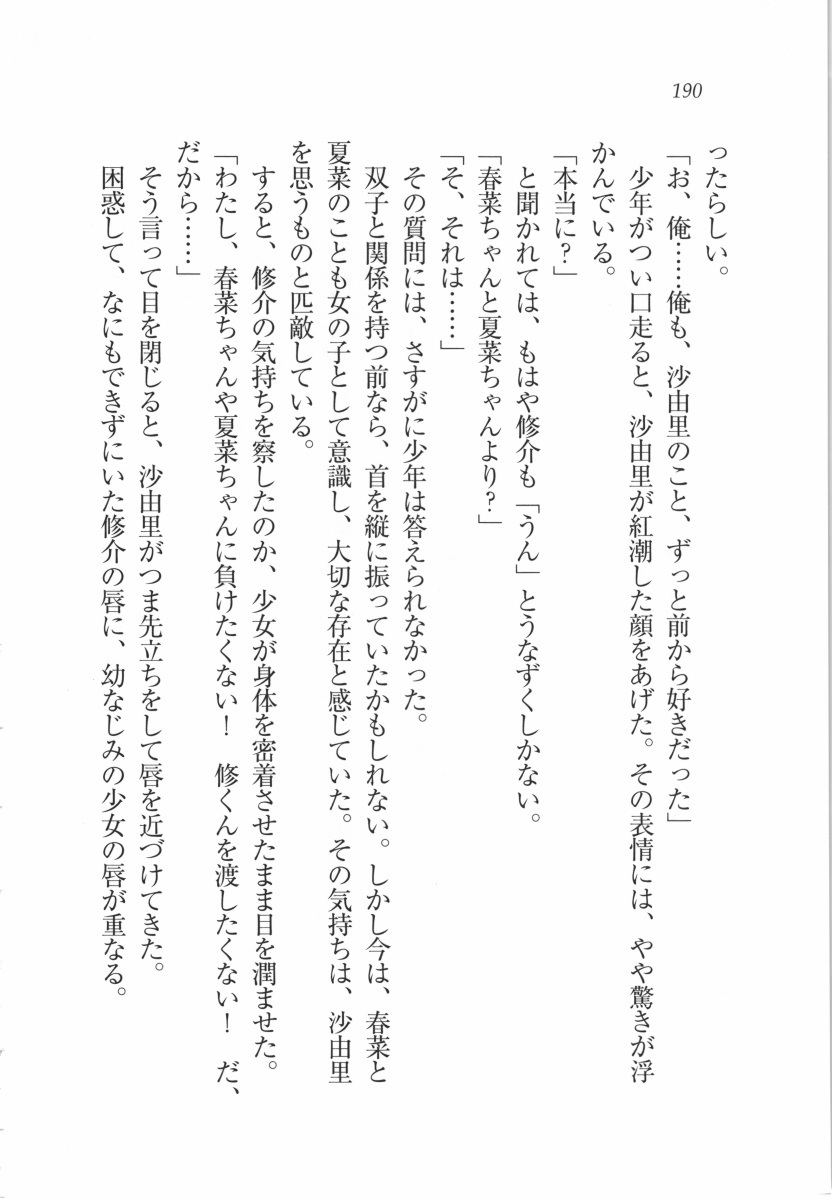 190
ったらしい。
「お、俺……俺も、沙由里のこと、ずっと前から好きだった」
　少年がつい口走ると、沙由里が紅潮した顔をあげた。その表情には、やや驚きが浮
かんでいる。
「本当に？」
　と聞かれては、もはや修介も「うん」とうなずくしかない。
「春菜ちゃんと夏菜ちゃんより？」
「そ、それは……」
　その質問には、さすがに少年は答えられなかった。
　双子と関係を持つ前なら、首を縦に振っていたかもしれない。しかし今は、春菜と
夏菜のことも女の子として意識し、大切な存在と感じていた。その気持ちは、沙由里
を思うものと匹敵している。
　すると、修介の気持ちを察したのか、少女が身体を密着させたまま目を潤ませた。
「わたし、春菜ちゃんや夏菜ちゃんに負けたくない！　修くんを渡したくない！　だ、
だから……」
　そう言って目を閉じると、沙由里がつま先立ちをして唇を近づけてきた。
　困惑して、なにもできずにいた修介の唇に、幼なじみの少女の唇が重なる。